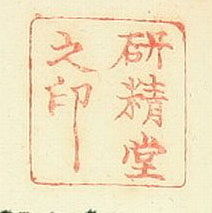 研精堂
之印